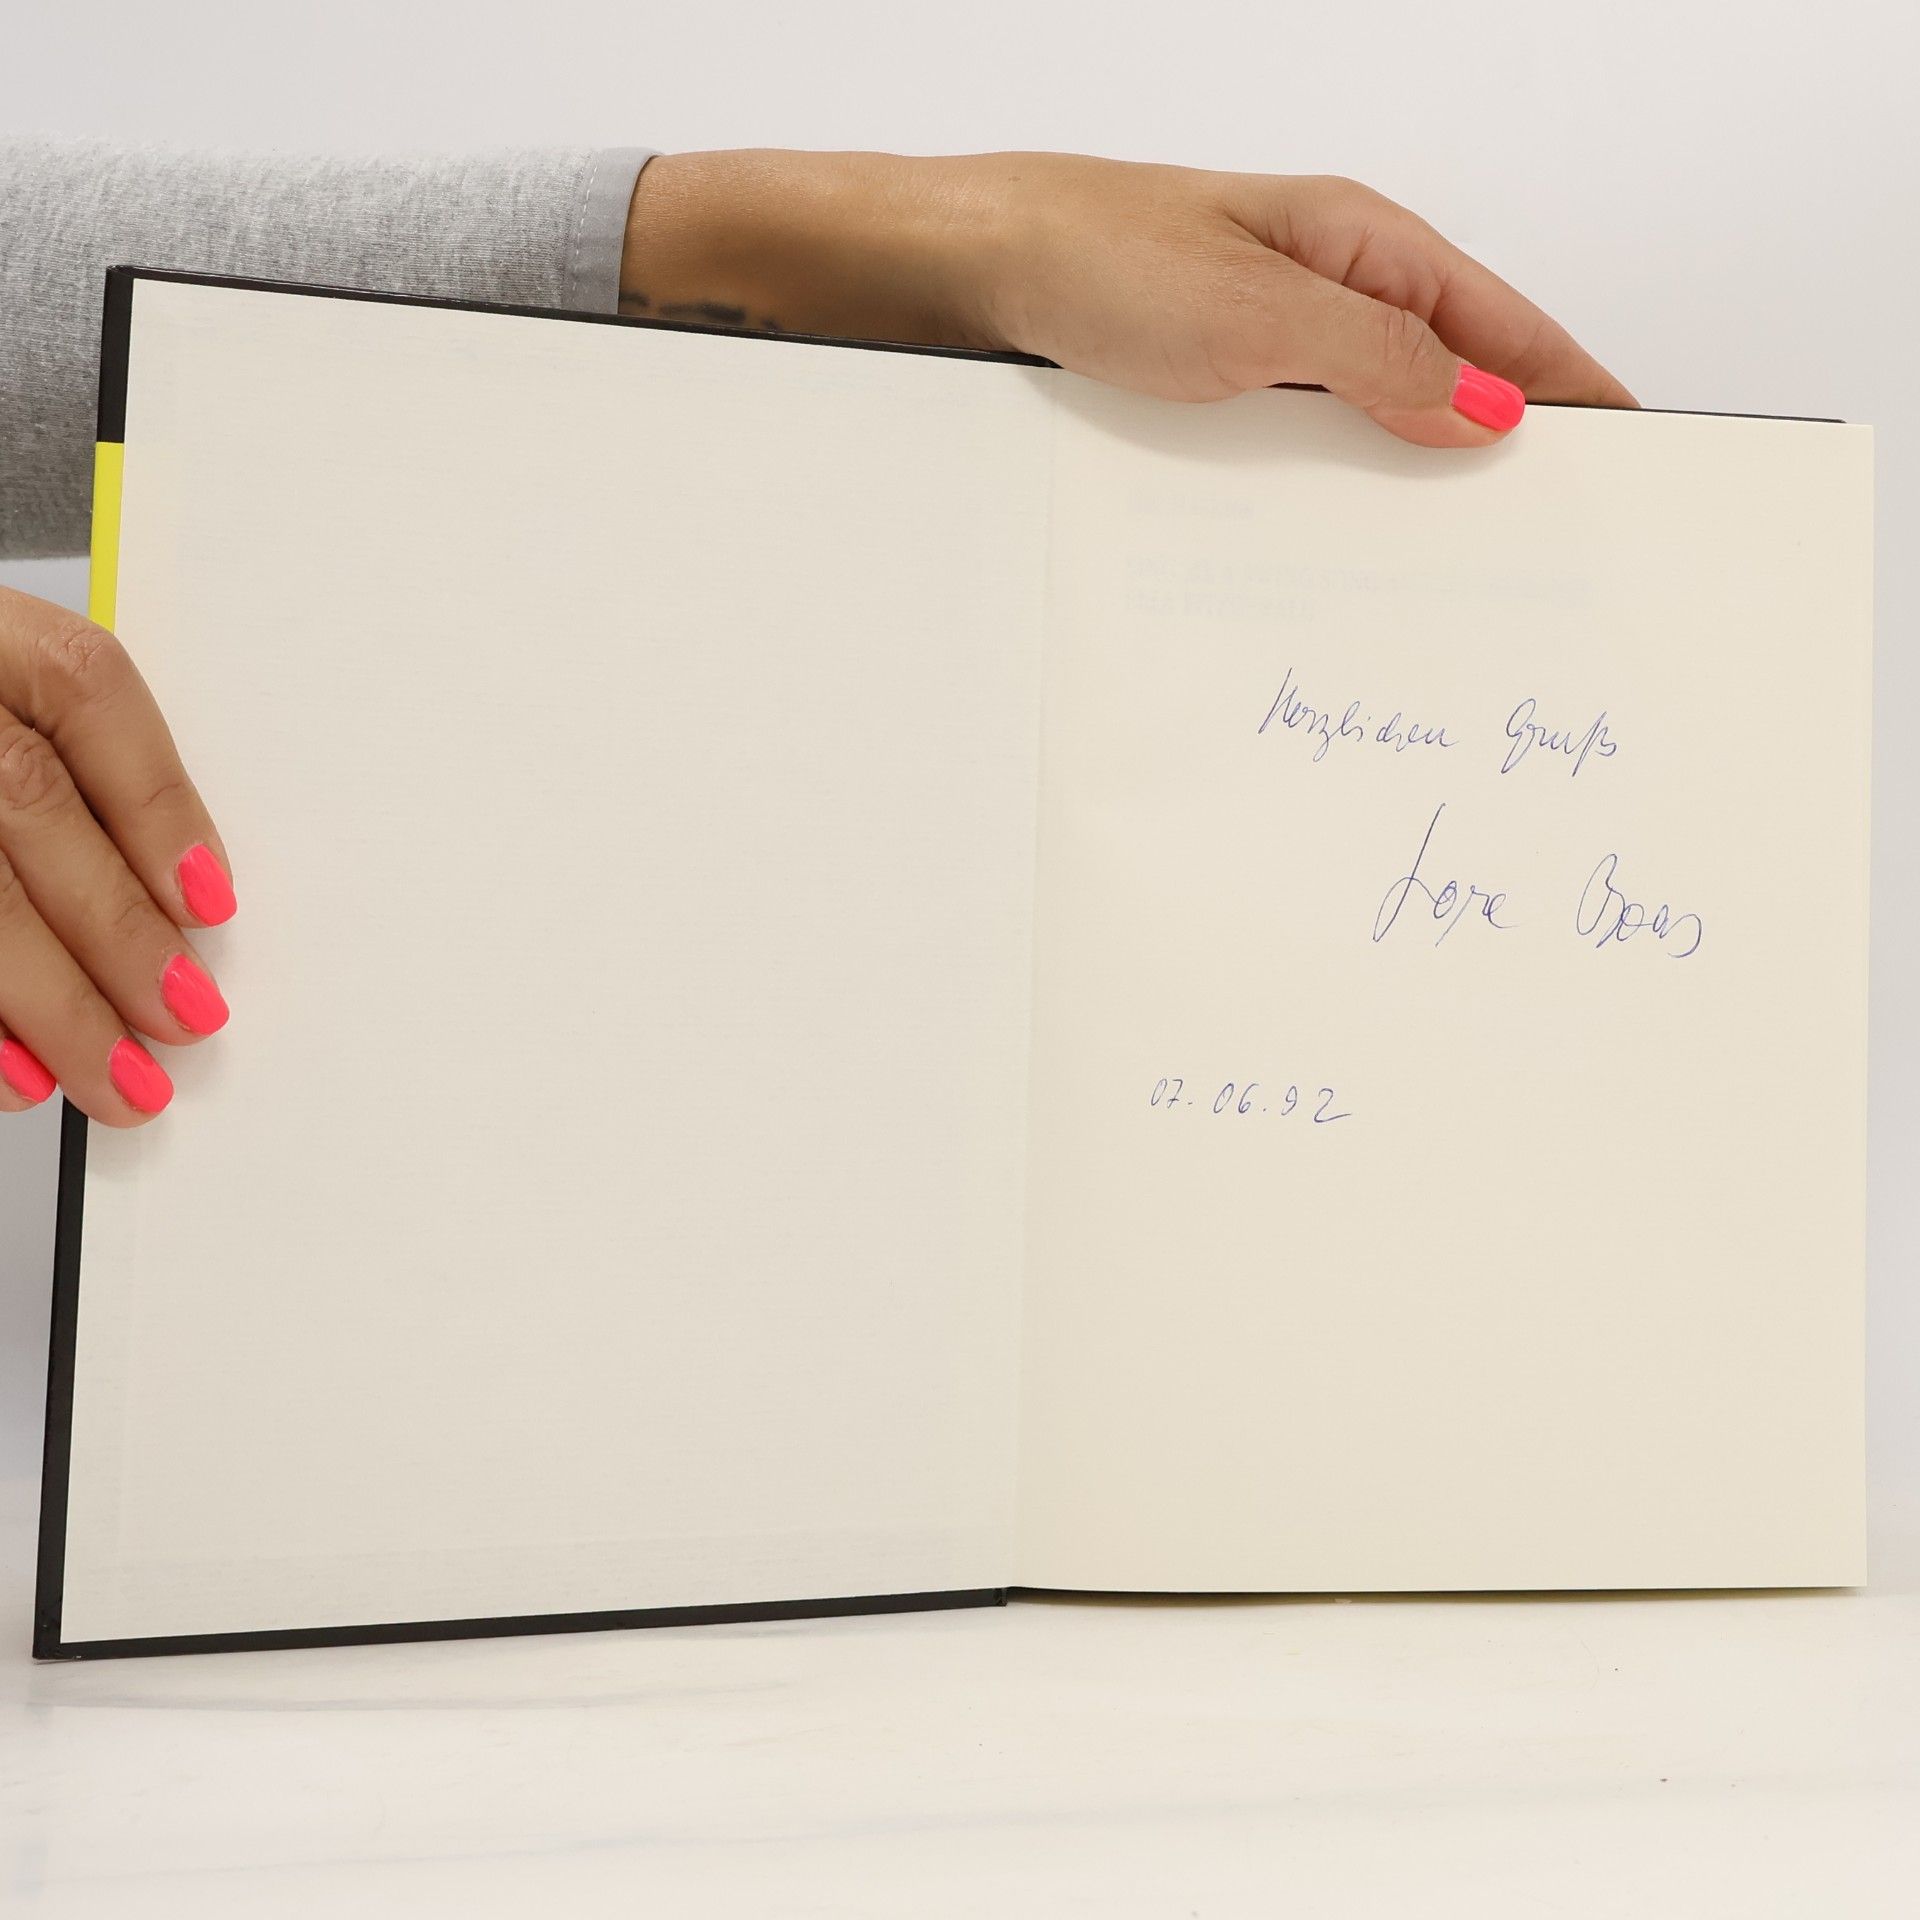 Herzlichen Gruß
Lore Boas
07.06.92